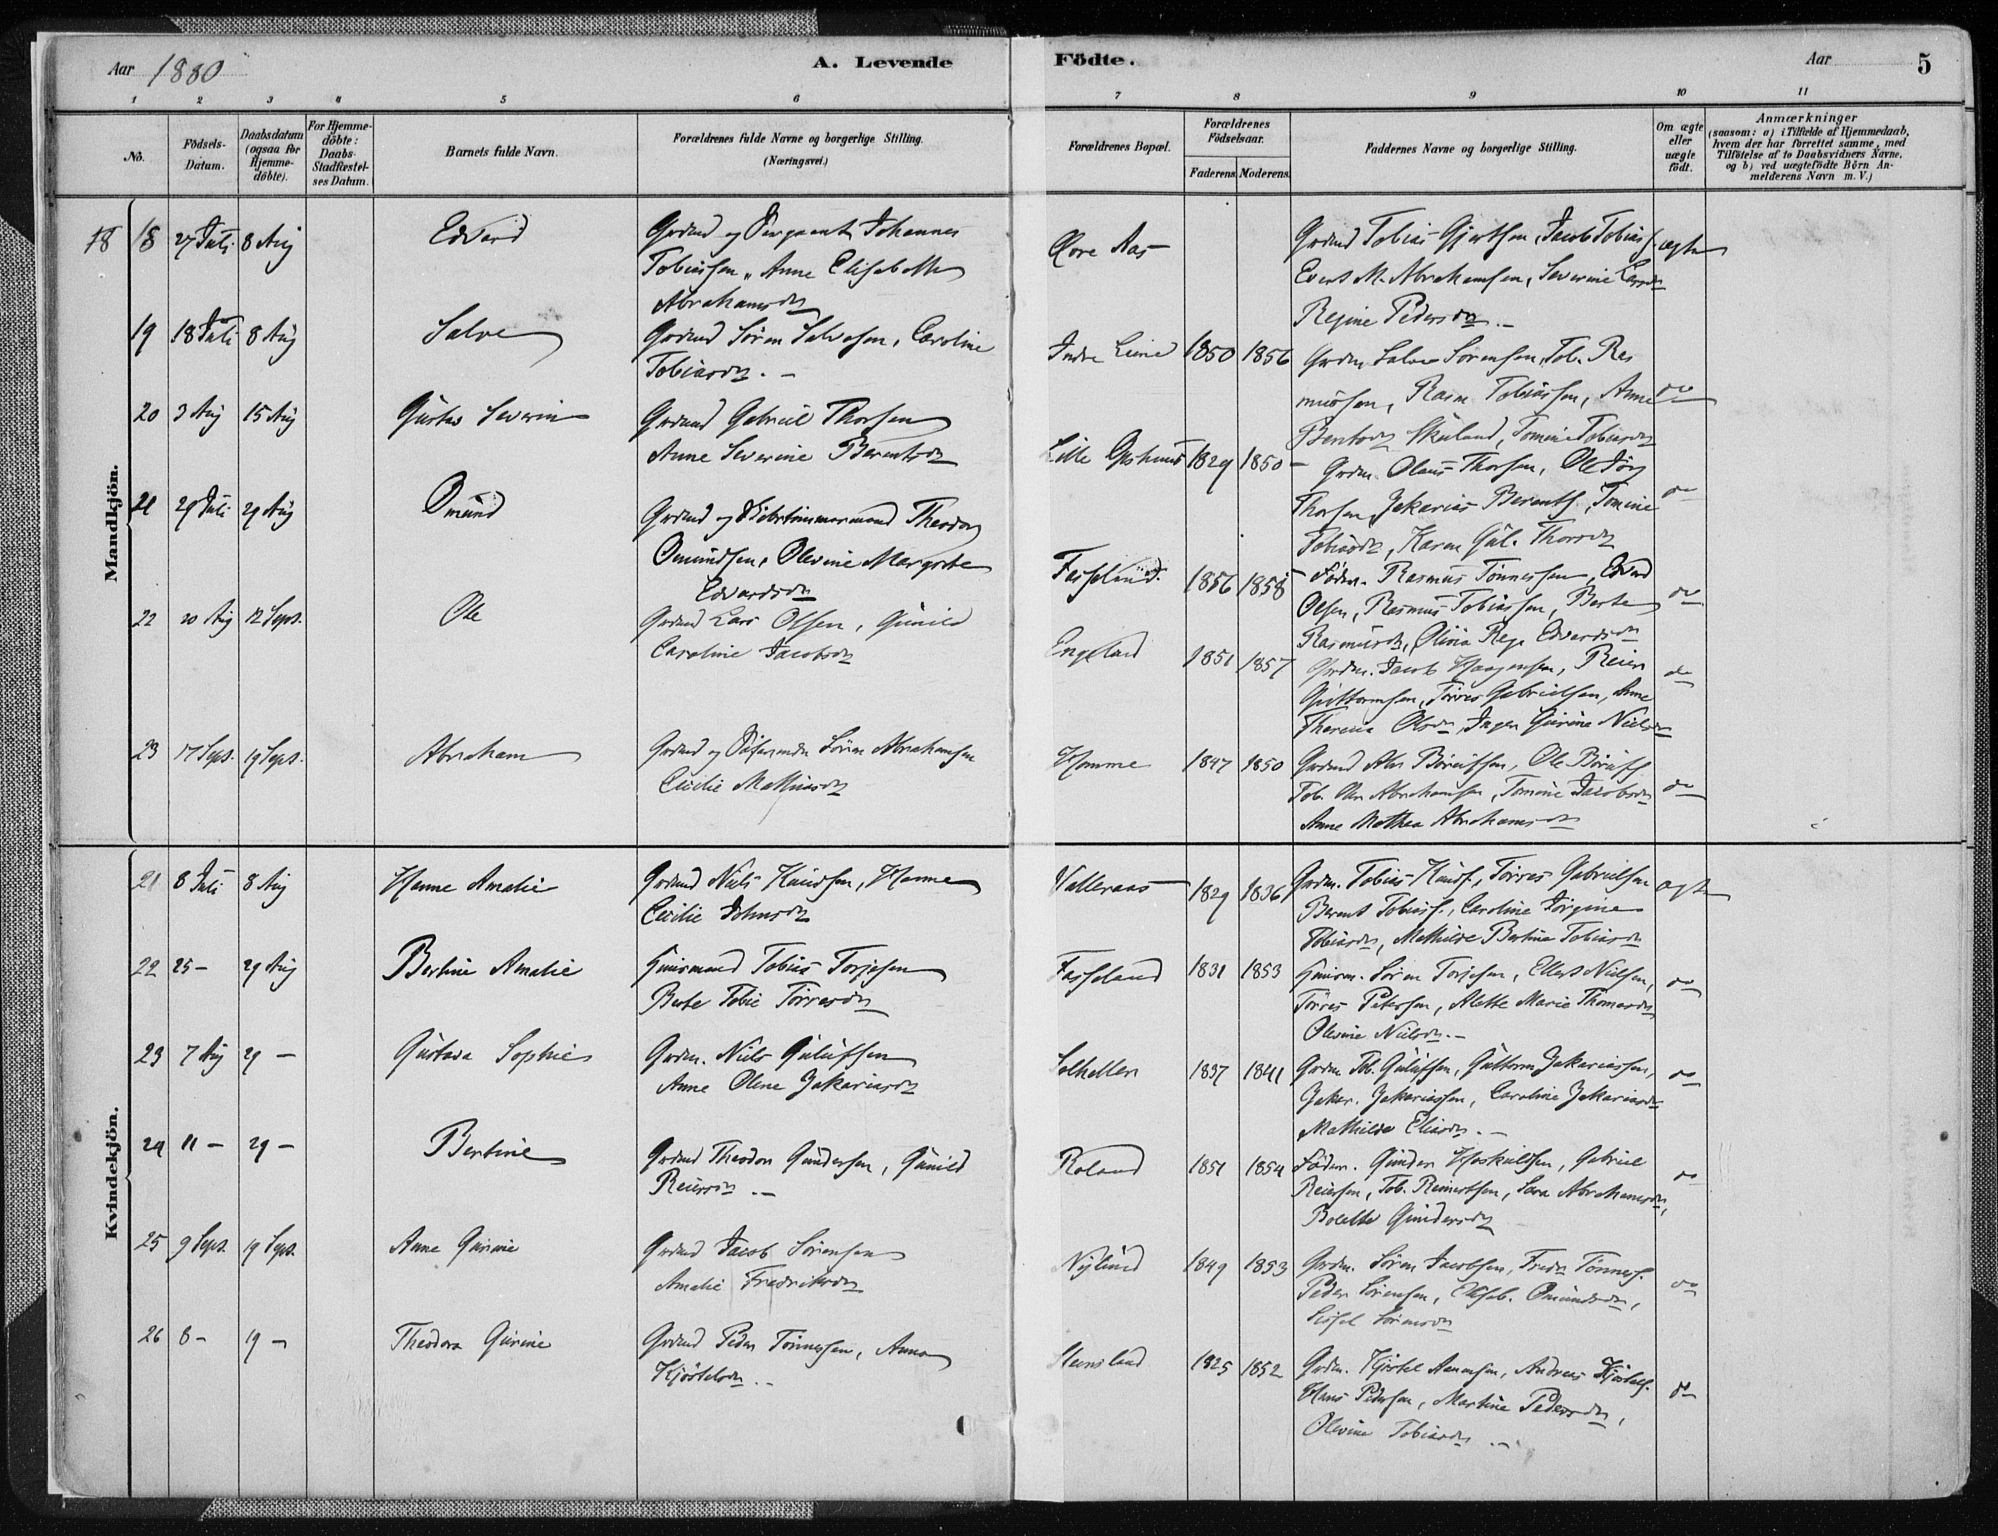 Aar 1880
A. Levende
Födte.
Aar
5
1 2 3 4 5 6 7 8 9 10 11
No.
Födsels-
Datum.
Daabsdatum
(ogsaa for
Hjemme-
döbte).
For Hjemme-
döbte:
Daabs-
Stadfæstel-
ses Datum.
Barnets fulde Navn.
Forældrenes fulde Navne og borgerlige Stilling.
(Næringsvei.)
Forældrenes Bopæl.
Forældrenes
Födselsaar.
Faderens. Moderens.
Faddernes Navne og borgerlige Stilling.
Om ægte
eller
uægte
födt.
Anmærkninger
(saasom: a) i Tilfælde af Hjemmedaab,
hvem der har forrettet samme, med
Tilföielse af to Daabsvidners Navne,
og b) ved uægtefödte Börn An-
melderens Navn m. V.)
Mandkjön.
18 18 27 Juli 8 Aug Edvard
Grdmd og Sergeant Johannes
Tobiassen, Anne Elisabeth
Abrahamsdtr
Aas
Grdmd Tobias Gjertsen, Jacob Tobiass. ægte
Evert M. Abrahamsen, Severine
Regine Pedersdtr. –
19 18 Juli 8 Aug Salve
Grdmd Søren Salvesen, Caroline
Tobiasdtr. –
Indre 1850 1856
Grdm. Salve Sørensen, Tob. Ras
mussen, Rasm Tobiassen, Anne do
Berntsdtr Skuland, Tomine Tobiasdtr
20 3 Aug 15 Aug Gustav Severin
Grdmd Gabriel Thorsen
Anne Severine Berentsdtr
Lille 1829 1850
Grdm. Olaus Thorsen, Ole Jørg
Thorsen, Zakarias Berents., Tomine do
Tobiasdtr, Karen Gul. Thorsdtr
21 29 Juli 29 Aug Omund
Grdmd og Theodor
Omundsen, Olevine Margrete
Edvardsdtr
Fasseland. 1856 1858
Føder. Rasmus Tønnessen, Edvard
Olsen, Rasmus Tobiassen, Berte do
Rasmusdtr, Olivia Edvardsdtr
22 20 Aug 12 Sept. Ole
Grdmd Lars Olsen, Gunild
Caroline Jacobsdtr
Engeland 1851 1857
Grdm. Jacob Haagensen, Reier do
Guttormsen, Tørres Gabrielsen, Anne
Theresia Olsdtr, Inger Gurine Nielsdtr
23 17 Sept. 19 Sept. Abraham
Grdmd og Søren Abrahamsen
Cecilie Mathiasdtr
Homme 1847 1850
Grdmd Abr Børuffsen, Ole Børuffs
Tob. Abrahamsen, Tomine Jacobsdtr do
Anne Mathea Abrahamsdtr
Kvindekjön.
21 8 Juli 8 Aug Hanne Amalie
Grdmd Niels Knudsen, Hanne
Cecilie Johnsdtr
Valleraas 1829 1836
Grdm. Tobias Knuds., Tørres Gabrielsen ægte
Berent Tobiass., Caroline Jørgine
Tobiasdtr, Mathilde Bertine Tobiasdtr
22 25 – 29 Aug Bertine Amalie
Huusmand Tobias Torjesen
Berte Tobie Tørresdtr
Fasseland 1831 1853
Huusm. Søren Torjesen, Ellert Nielsen,
Tørres Petersen, Alette Marie Thomasdtr do
Olevine Nielsdtr. –
23 7 Aug 29 – Gustava Sophie
Grdm. Niels Gulufsen
Anne Olene Zakariasdtr
Solhellen 1837 1841
Grdm Tob. Gulufsen, Guttorm Zakariassen, do
Zakar. Zakariassen, Caroline Zakariasdtr
Mathilde Eliasdtr. –
24 11 – 29 – Bertine
Grdmd Theodor Gundersen, Gunild
Reiersdtr. –
Roland 1851 1854
Føder. Gunder Høskuldsen, Gabriel do
Reiersen, Tob. Reinertsen, Sara Abrahamsdtr,
Bolette Gundersdtr
25 9 Sept. 19 Sept. Anne Gurine
Grdmd Jacob Sørensen
Amalie Fredriksdtr
Nylund 1849 1853
Grdm. Søren Jacobsen, Fredr Tønness.
Peder Sørensen, Elisab. Omundsdtr, do
Sissel Sørensdtr
26 8 – 19 – Theodora Gurine
Grdmd Peder Tønnessen, Anna
Kjøstelsdtr. –
Steinsland 1825 1852
Grdm. Kjøstel Aanensen, Andreas Kjøstels. do
Hans Pedersen, Martine Pedersdtr,
Olevine Tobiasdtr. –